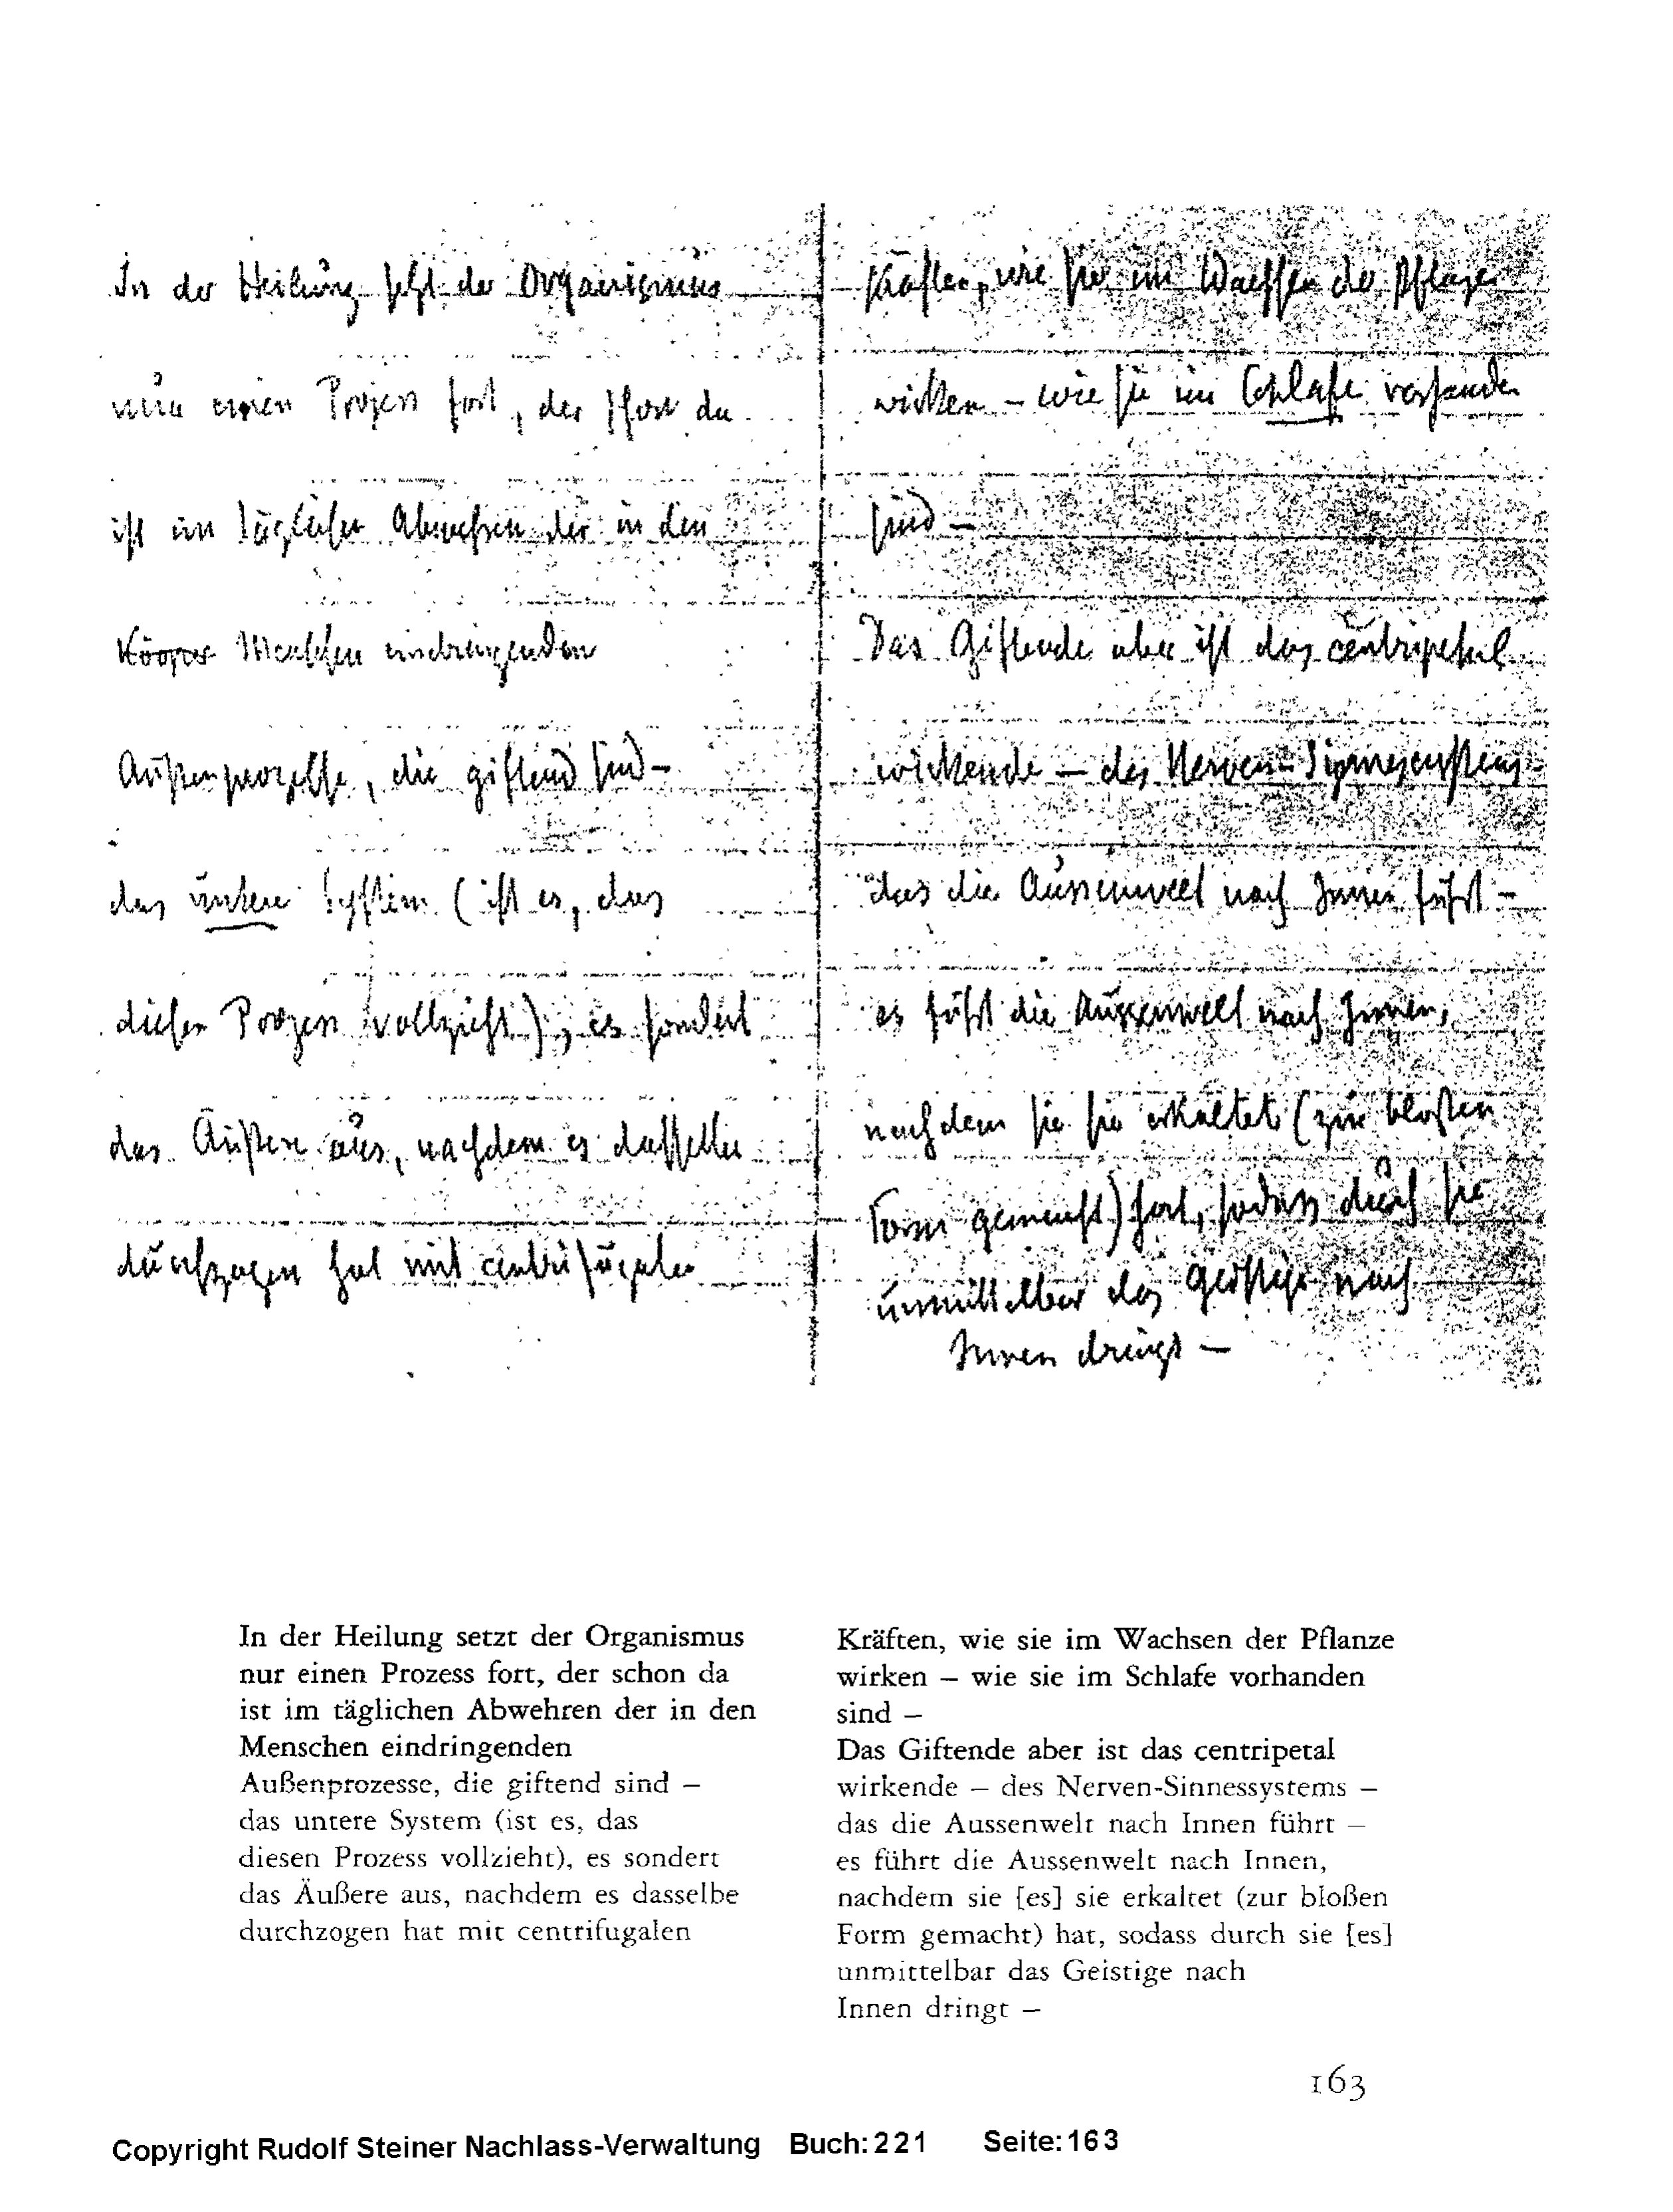 In der Heilung setzt der Organismus
nur einen Prozess fort, der schon da
ist im täglichen Abwehren der in den
Körper Menschen eindringenden
Außenprozesse, die giftend sind –
das untere System (ist es, das
diesen Prozess vollzieht), es sondert
das Äußere aus, nachdem es dasselbe
durchzogen hat mit centrifugalen
Kräften, wie sie im Wachsen der Pflanze
wirken – wie sie im Schlafe vorhanden
sind –
Das Giftende aber ist das centripetal
wirkende – des Nerven-Sinnessystems –
das die Aussenwelt nach Innen führt –
es führt die Aussenwelt nach Innen,
nachdem sie sie erkaltet (zur bloßen
Form gemacht) hat, sodass durch sie
unmittelbar das Geistige nach
Innen dringt –
In der Heilung setzt der Organismus
nur einen Prozess fort, der schon da
ist im täglichen Abwehren der in den
Menschen eindringenden
Außenprozesse, die giftend sind –
das untere System (ist es, das
diesen Prozess vollzieht), es sondert
das Äußere aus, nachdem es dasselbe
durchzogen hat mit centrifugalen
Kräften, wie sie im Wachsen der Pflanze
wirken – wie sie im Schlafe vorhanden
sind –
Das Giftende aber ist das centripetal
wirkende – des Nerven-Sinnessystems –
das die Aussenwelt nach Innen führt –
es führt die Aussenwelt nach Innen,
nachdem sie [es] sie erkaltet (zur bloßen
Form gemacht) hat, sodass durch sie [es]
unmittelbar das Geistige nach
Innen dringt –
163
Copyright Rudolf Steiner Nachlass-Verwaltung Buch: 221 Seite: 163